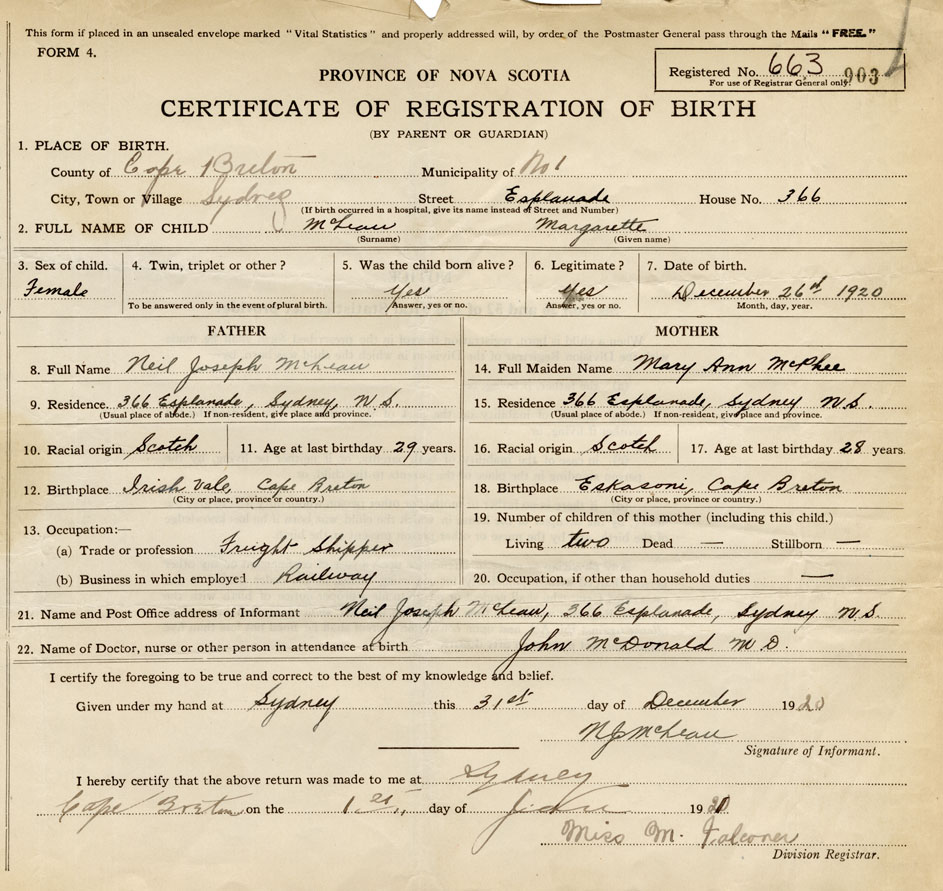 This form if placed in an unsealed envelope marked "Vital Statistics" and properly addressed will, by order of the Postmaster General pass through the Mails "FREE."
FORM 4.
Registered No. 663 903
For use of Registrar General only.
PROVINCE OF NOVA SCOTIA
CERTIFICATE OF REGISTRATION OF BIRTH
(BY PARENT OR GUARDIAN)
1. PLACE OF BIRTH.
County of Cape Breton Municipality of No 1
City, Town or Village Sydney Street Esplanade House No. 366
(If birth occurred in a hospital, give its name instead of Street and Number)
2. FULL NAME OF CHILD McLean Margarette
(Surname) (Given name)
3. Sex of child. 4. Twin, triplet or other? 5. Was the child born alive? 6. Legitimate? 7. Date of birth.
Female Yes Yes December 26th 1920
To be answered only in the event of plural birth. Answer, yes or no. Answer, yes or no. Month, day, year.
FATHER MOTHER
8. Full Name Neil Joseph McLean 14. Full Maiden Name Mary Ann McPhee
9. Residence. 366 Esplanade, Sydney, N.S. 15. Residence 366 Esplanade, Sydney N.S.
(Usual place of abode.) If non-resident, give place and province. (Usual place of abode.) If non-resident, give place and province.
10. Racial origin Scotch 11. Age at last birthday 29 years. 16. Racial origin Scotch 17. Age at last birthday 28 years.
12. Birthplace Irish Vale, Cape Breton 18. Birthplace Eskasoni, Cape Breton
(City or place, province or country.) (City or place, province or country.)
13. Occupation:— 19. Number of children of this mother (including this child.)
(a) Trade or profession Freight Shipper Living two Dead — Stillborn —
(b) Business in which employed Railway 20. Occupation, if other than household duties —
21. Name and Post Office address of Informant Neil Joseph McLean, 366 Esplanade, Sydney N.S.
22. Name of Doctor, nurse or other person in attendance at birth John McDonald M.D.
I certify the foregoing to be true and correct to the best of my knowledge and belief.
Given under my hand at Sydney this 31st day of December 1920
N J McLean
Signature of Informant.
I hereby certify that the above return was made to me at Sydney
Cape Breton on the 1st day of 19
Miss M. Falconer
Division Registrar.